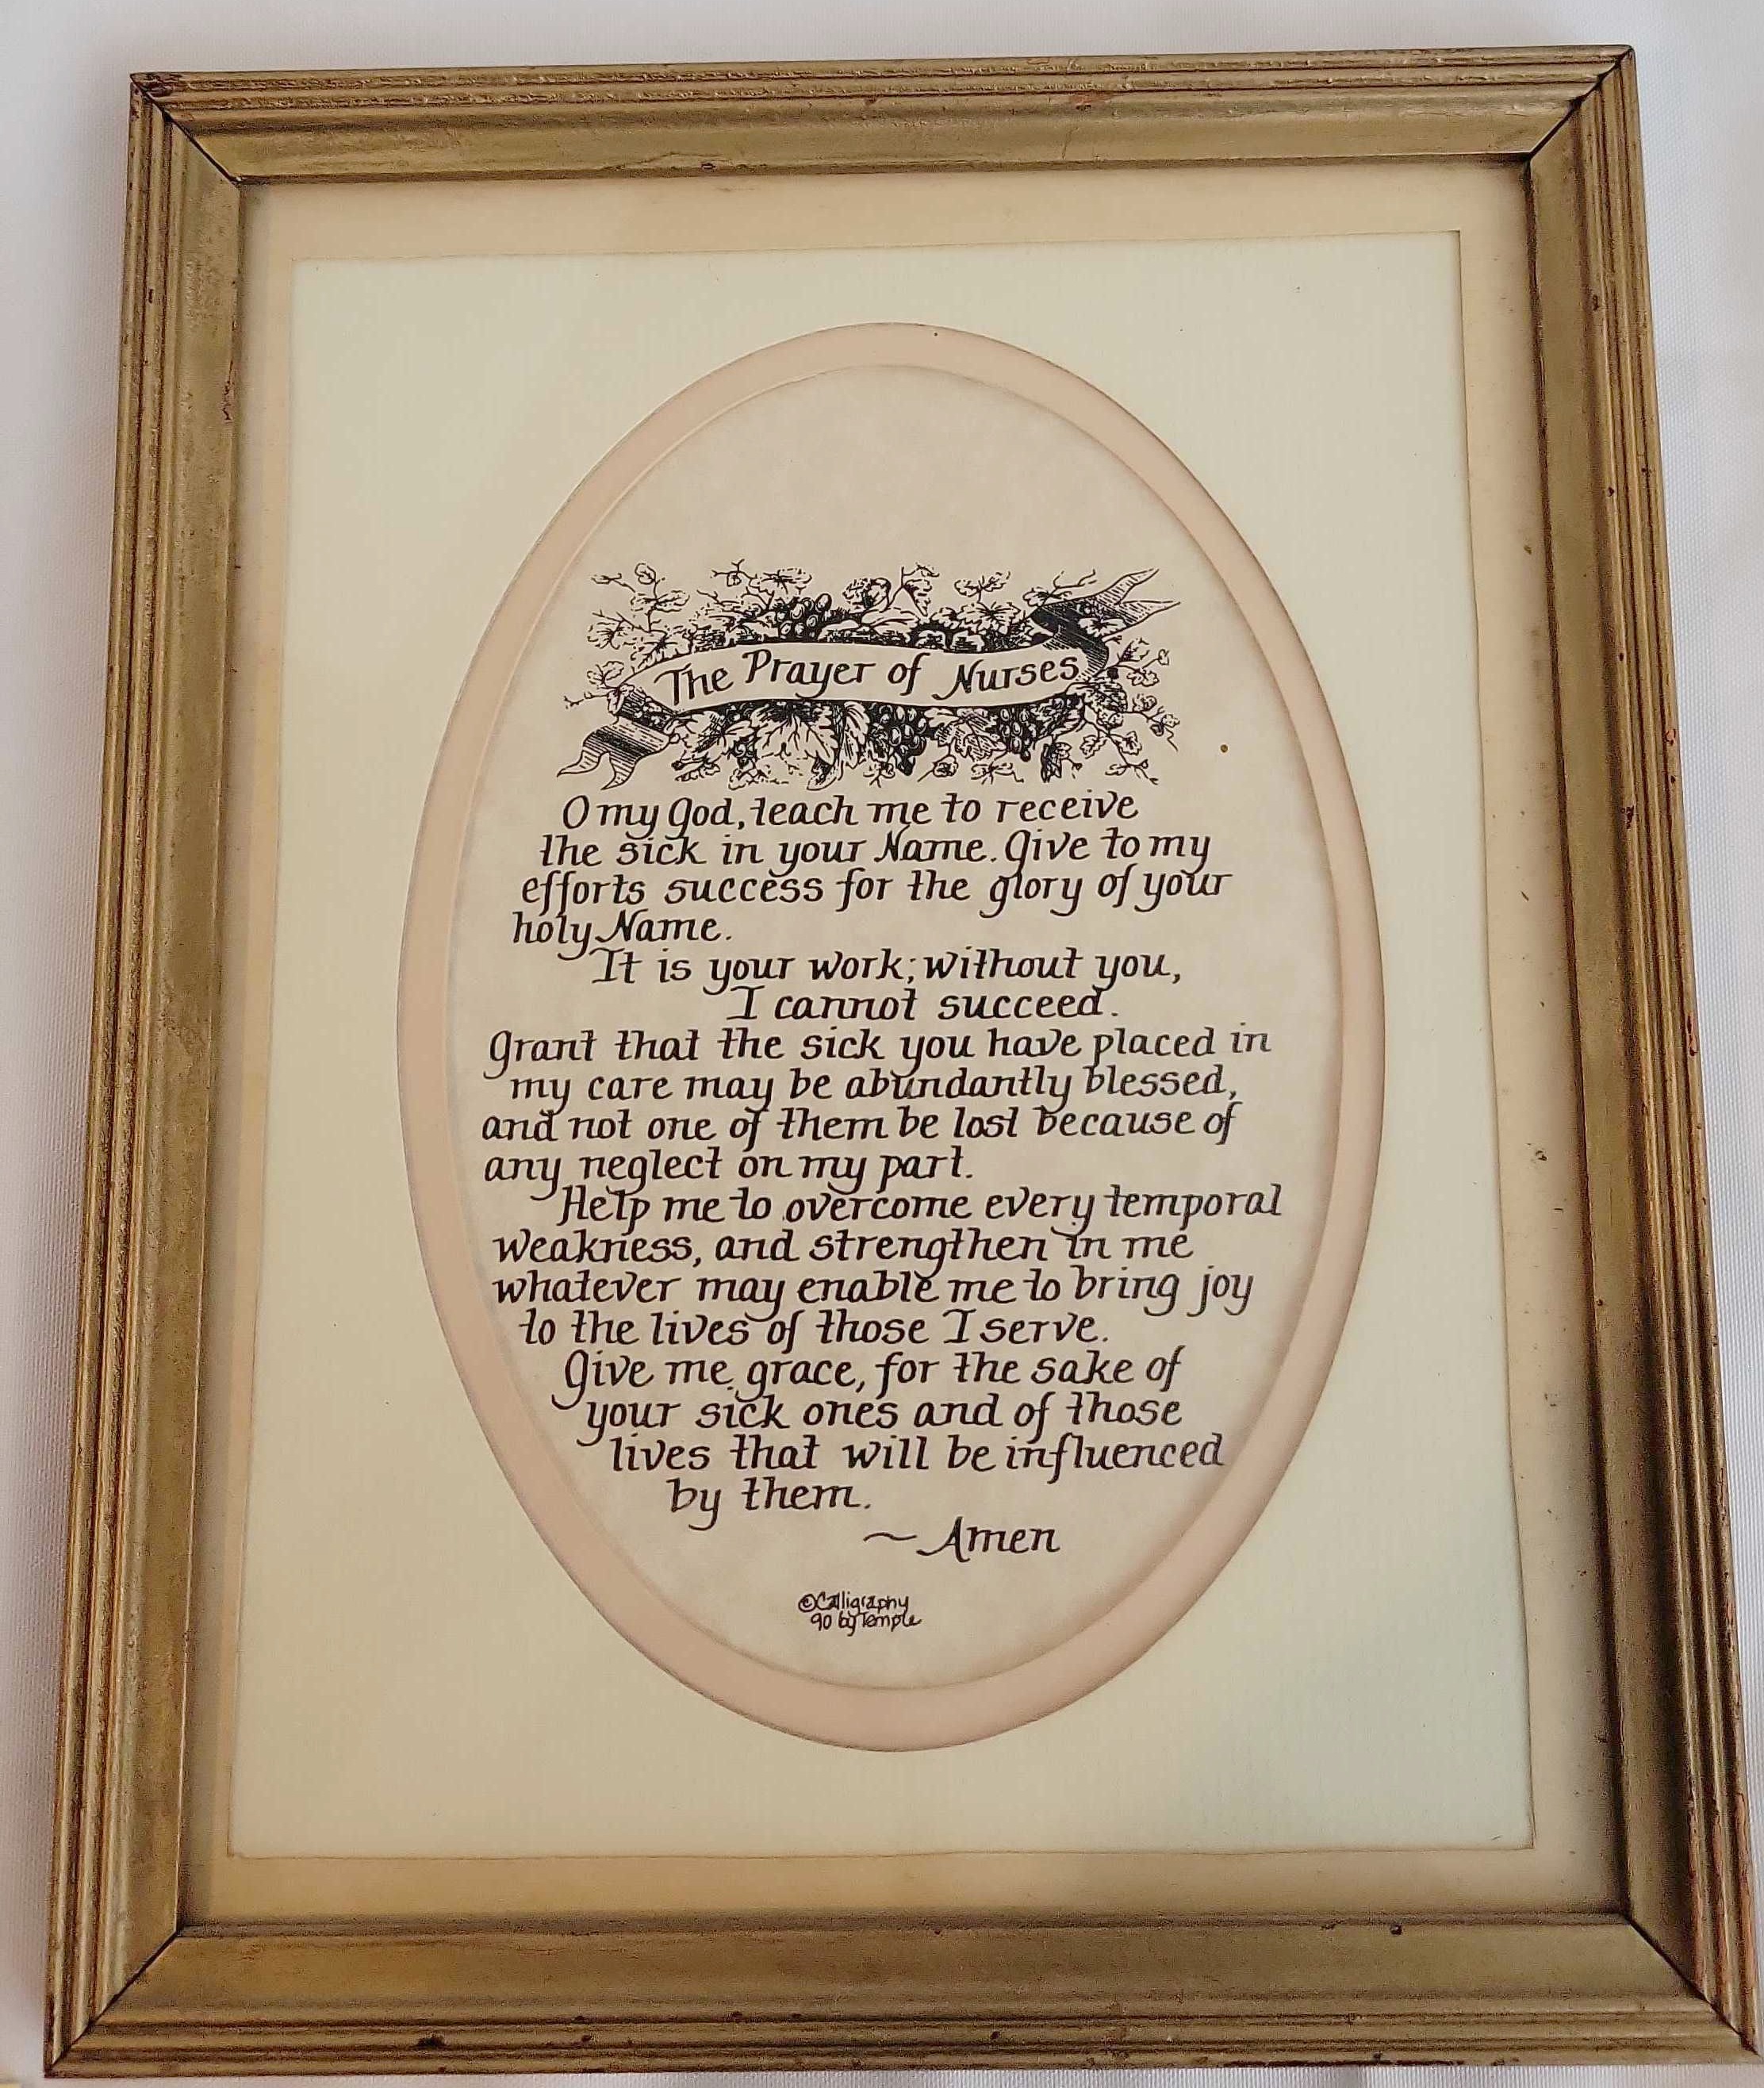 The Prayer of Nurses
O my God, teach me to receive
the sick in your Name. Give to my
efforts success for the glory of your
holy Name.
It is your work; without you,
I cannot succeed.
Grant that the sick you have placed in
my care may be abundantly blessed,
and not one of them be lost because of
any neglect on my part.
Help me to overcome every temporal
weakness, and strengthen in me
whatever may enable me to bring joy
to the lives of those I serve.
Give me grace, for the sake of
your sick ones and of those
lives that will be influenced
by them.
~ Amen
©Calligraphy
90 by Temple